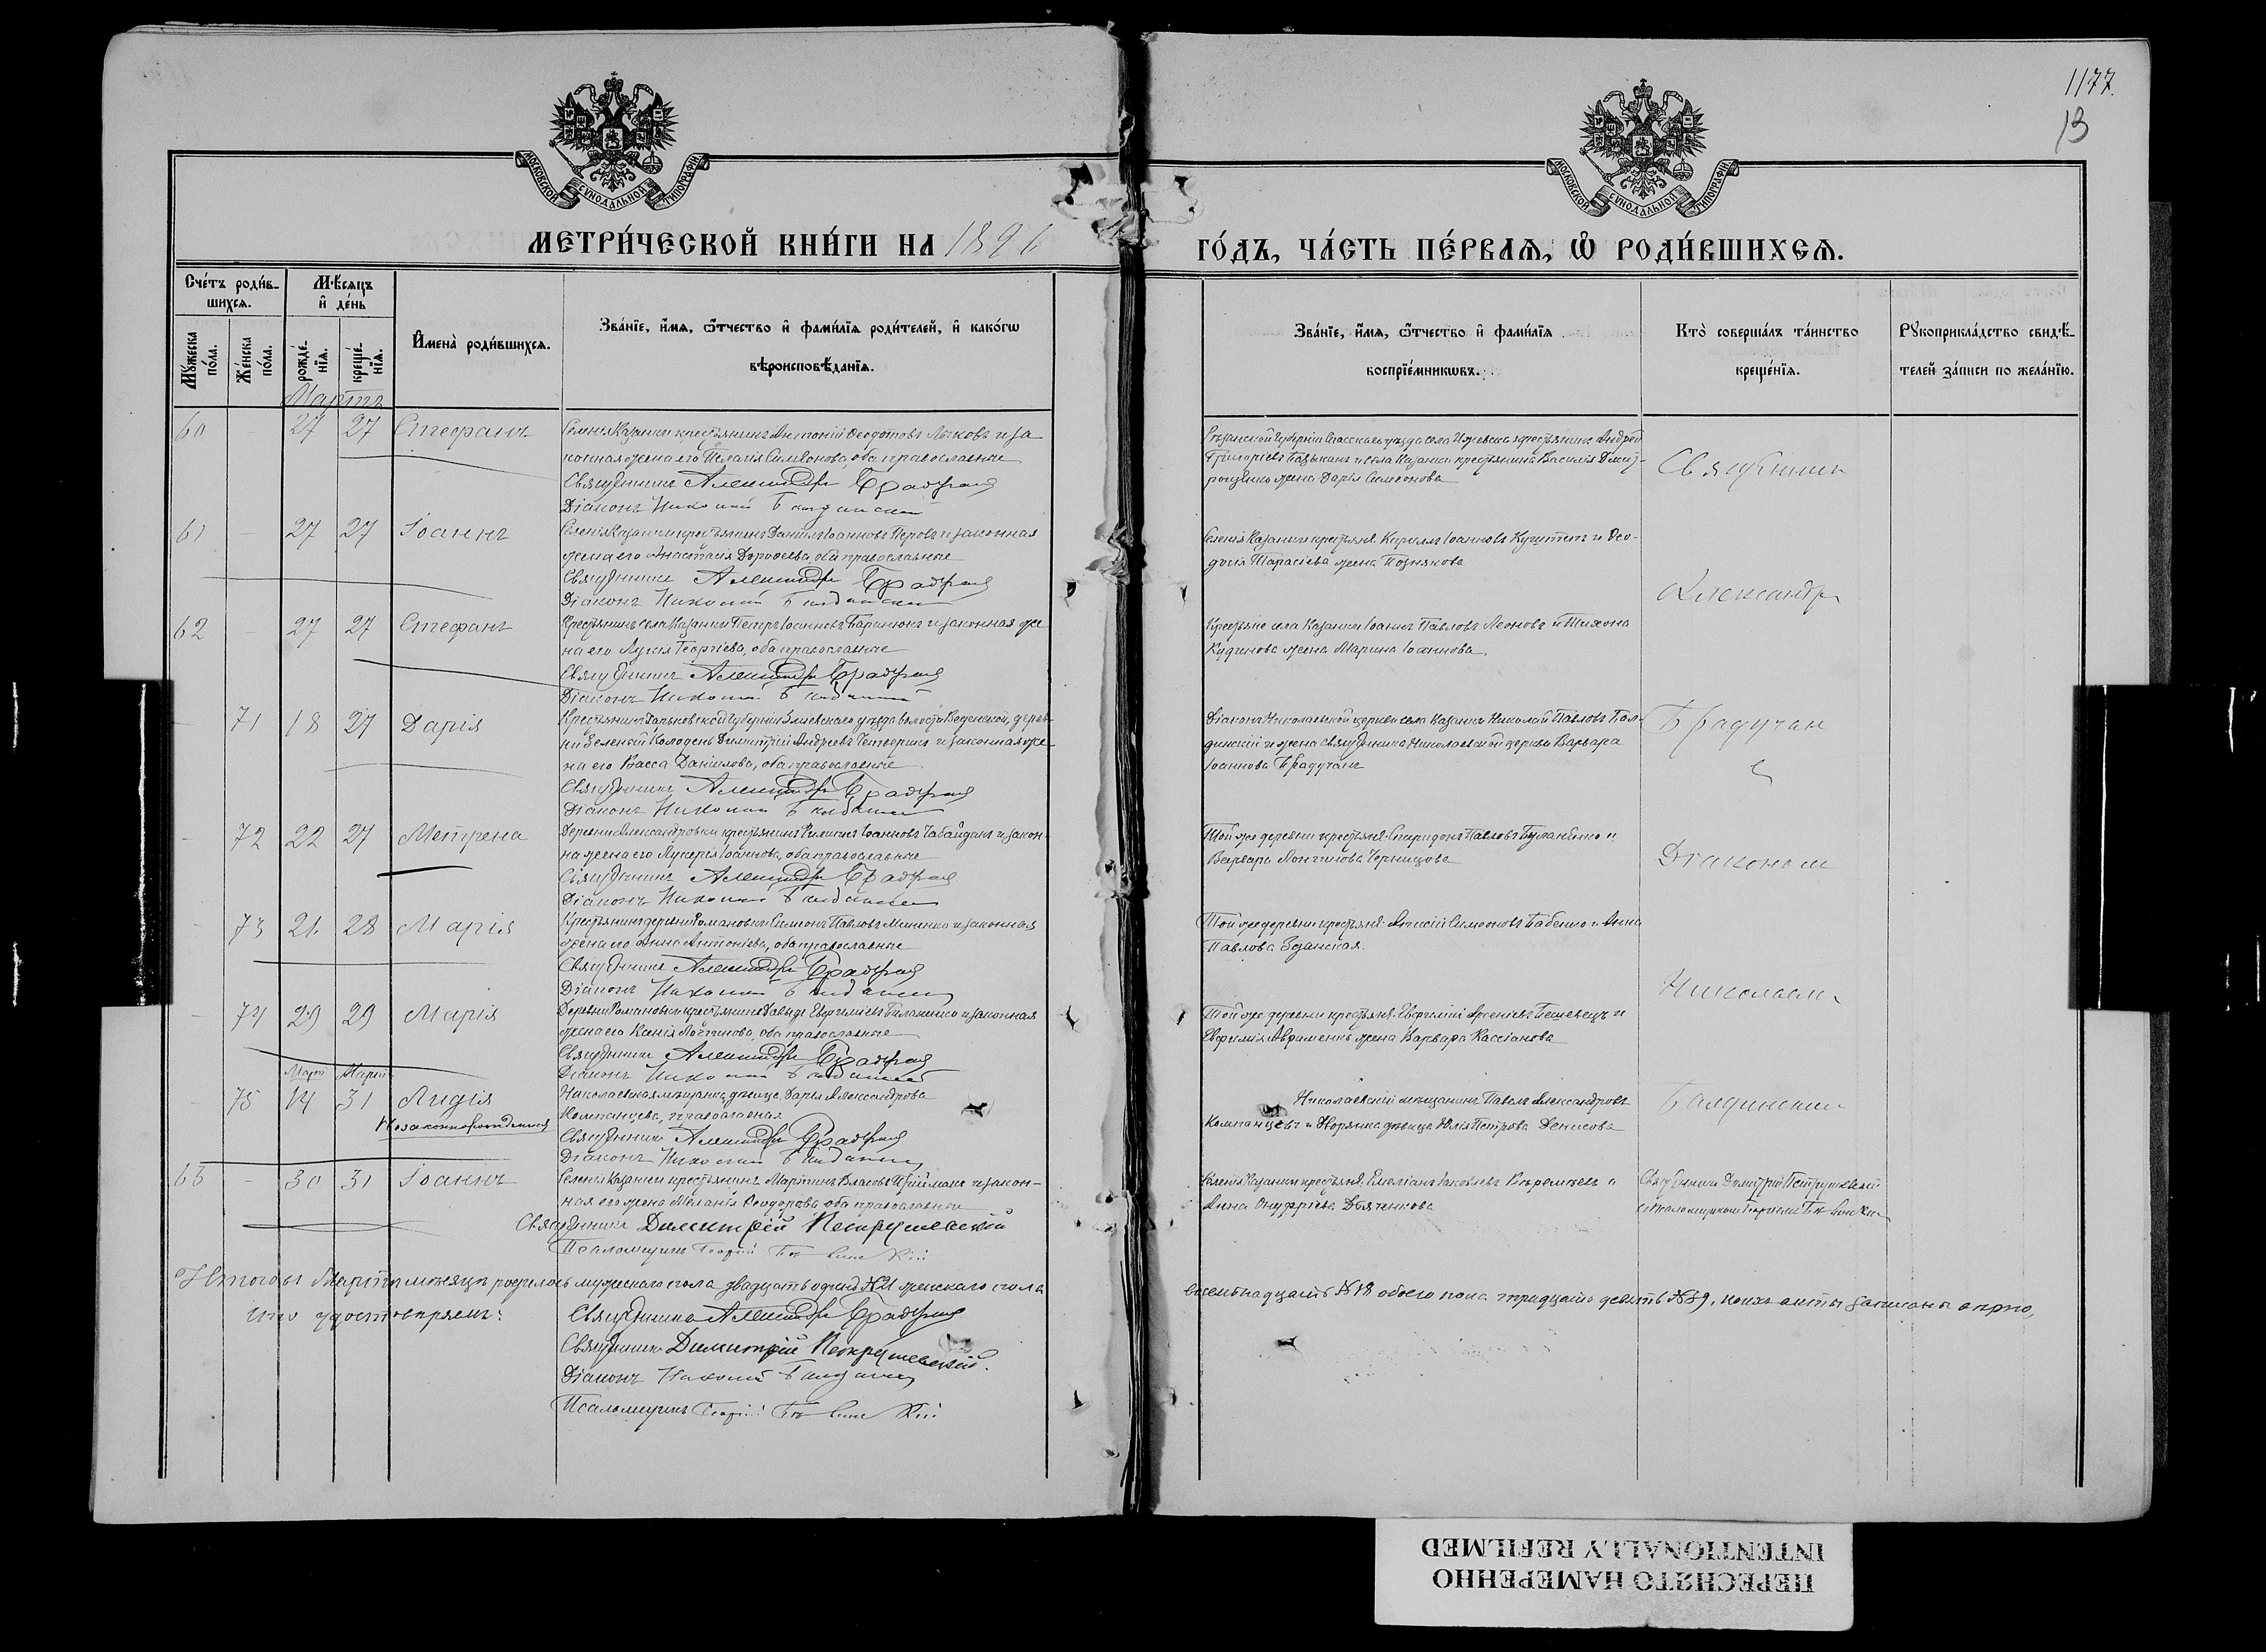 1177.
13
МОСКОВСКОЙ СУНОДАЛЬНОЙ ТИПОГРАФІИ
МОСКОВСКОЙ СУНОДАЛЬНОЙ ТИПОГРАФІИ
МЕТРИ́ЧЕСКОЙ КНИ́ГИ НА 1896
ГО́ДЪ, ЧА́СТЬ ПЕ́РВАЯ, Ѡ РОДИ́ВШИХСЯ.
Сче́тъ роди́в-
шихся.
Мѣсяцъ
и де́нь
Мужеска по́ла.
Же́нска по́ла.
рожде́-
нїя.
креще́-
нїя.
Имена̀ роди́вшихся.
Зва́нїе, и́мя, ѻ҆́тчество и фами́лїя роди́телей, и како́гѡ
вѣроисповѣ́данїя.
Зва́нїе, и́мя, ѻ҆́тчество и фами́лїя
воспрїе́мникѡвъ.
Кто̀ соверша́лъ та́инство
креще́нїя.
Рукоприкла́дство свидѣ́-
телей за́писи по жела́нїю.
Мартъ
60 - 27 27 Стефанъ
Селенія Казанки крестьянинъ Антоній Феодотовъ Лыковъ и за
конная жена его Пелагія Симеонова, оба православные
Священникъ Александръ Брадучанъ
Діаконъ Николай Балдинскій
Рязанской Губерніи Спасскаго уѣзда села Ижевска крестьянинъ Андрей
Григоріевъ и села Казанки крестьянина Василія Дмит-
рощенко жена Дарія Симеонова
Священникъ
61 - 27 27 Іоаннъ
Селенія Казанки крестьянинъ Даніилъ Іоанновъ Перовъ и законная
жена его Анастасія Дорофеева, оба православные
Священникъ Александръ Брадучанъ
Діаконъ Николай Балдинскій
Селенія Казанки крестьяне Кириллъ Іоанновъ и Фео-
досія Тарасіева жена Познякова
Александръ
62 - 27 27 Стефанъ
Крестьянинъ села Казанки Петръ Іоанновъ Баранюкъ и законная же
на его Лукія Георгіева, оба православные
Священникъ Александръ Брадучанъ
Діаконъ Николай Балдинскій
Крестьяне села Казанки Іоаннъ Павловъ Леоновъ и Тихона
Кудинова жена Марина Іоаннова.
- 71 18 27 Дарія
Крестьянинъ Харьковской Губерніи Зміевскаго уѣзда волости Веденской, дерев-
ни Зеленый Колодезь Димитрій Андреевъ Четверикъ и законная же-
на его Васса Даніилова, оба православные
Священникъ Александръ Брадучанъ
Діаконъ Николай Балдинскій
Діаконъ Николаевской церкви села Казанки Николай Павловъ Бал-
динскій и жена священника Николаевской церкви Варвара
Іоаннова Брадучанъ
Брадучан
с
- 72 22 27 Метрена
Деревни Александровки крестьянинъ Филиппъ Іоанновъ Чабайданъ и закон-
на жена его Лукерія Іоаннова, оба православные
Священникъ Александръ Брадучанъ
Діаконъ Николай Балдинскій
Той же деревни крестьяне: Спиридонъ Павловъ и
Варвара Лонгинова Черницова
Діакономъ
- 73 21 28 Марія
Крестьянинъ деревни Романовки Симеонъ Павловъ Миненко и законная
жена его Анна Антоніева, оба православные
Священникъ Александръ Брадучанъ
Діаконъ Николай Балдинскій
Той же деревни крестьяне: Алексій Симеоновъ Бабенко и Анна
Павлова Зданская.
Николаемъ
- 74 29 29 Марія
Деревни Романовки крестьянинъ Давидъ Евфиміевъ и законная
жена его Ксенія Лонгинова, оба православные
Священникъ Александръ Брадучанъ
Діаконъ Николай Балдинскій
Той же деревни крестьяне: Евфимій Арсеніевъ и
Евфимія Авраменко жена Варвара Кассіанова
Мартъ Мартъ
- 75 14 31 Лидія
Незаконнорожденная
Николаевская мѣщанка, дѣвица Дарья Александрова
Компанцева, православная
Священникъ Александръ Брадучанъ
Діаконъ Николай Балдинскій
Николаевскій мѣщанинъ Павелъ Александровъ
Компанцевъ и дворянка дѣвица Юлія Петрова Денисова
Балдинскимъ
63 - 30 31 Іоаннъ
Селенія Казанки крестьянинъ Мартинъ Власовъ Прійманъ и закон-
ная его жена Меланія Феодорова, оба православные
Священникъ Димитрій Петрушевскій
Псаломщикъ Георгій
Селенія Казанки крестьяне: Емеліанъ Іаковлевъ и
Анна Онуфріева Дьяченкова
Священникъ Димитрій Петрушевскій
съ псаломщикомъ Георгіемъ
Итого въ Мартѣ мѣсяцѣ родилось мужескаго пола двадцать одинъ №21 женскаго пола
восемнадцать №18 обоего пола тридцать девять №39, коихъ акты записаны вѣрно,
что удостовѣряемъ:
Священникъ Александръ Брадучанъ
Священникъ Димитрій Петрушевскій.
Діаконъ Николай Балдинскій
Псаломщикъ Георгій
ПЕРЕСНЯТО НАМЕРЕННО
INTENTIONALLY REFILMED